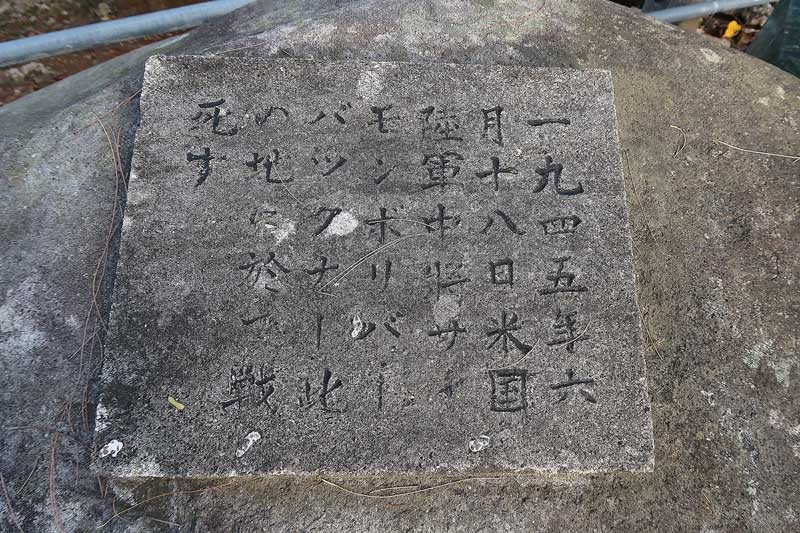 一九四五年六
月十八日米国
陸軍中将サイ
モンボリバー
バツクナー此
の地に於て戦
死す